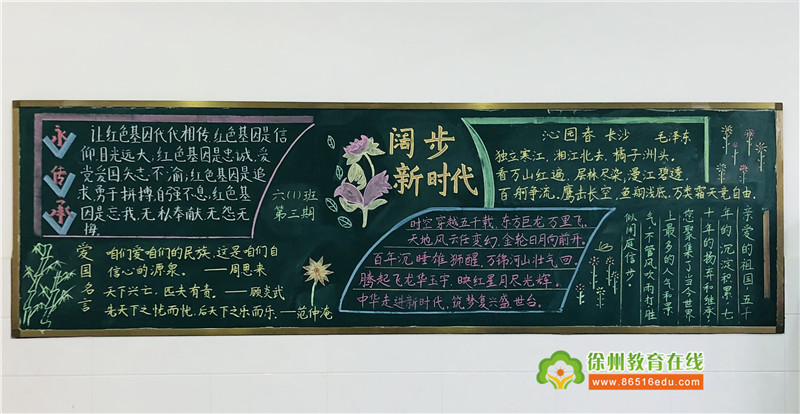 永
传
承
让红色基因代代相传,红色基因是信
仰目光远大,红色基因是忠诚,爱
党爱国矢志不渝,红色基因是追
求勇于拼搏,自强不息,红色基
因是忘我,无私奉献无怨无
悔
爱国名言
咱们爱咱们的民族,这是咱们自
信心的源泉。——周恩来
天下兴亡,匹夫有责。——顾炎武
先天下之忧而忧,后天下之乐而乐。—范仲淹
六(1)班
第三期
阔步
新时代
时空穿越五千载,东方巨龙万里飞,
天地风云任变幻,金轮日月向前开。
百年沉睡雄狮醒,万锦河山壮气回,
腾起飞龙华玉宇,映红星月尽光辉。
中华走进新时代,筑梦复兴盛世台。
沁园春 长沙 毛泽东
独立寒江,湘江北去,橘子洲头。
看万山红遍,层林尽染;漫江碧透,
百舸争流。鹰击长空,鱼翔浅底,万类霜天竞自由。
亲爱的祖国,五十
年的沉淀积累,七
十年的扬弃和继承,
您聚集了当今世界
上最多的人气和景
气,不管风吹雨打胜
似闲庭信步。
徐州教育在线
www.86516edu.com